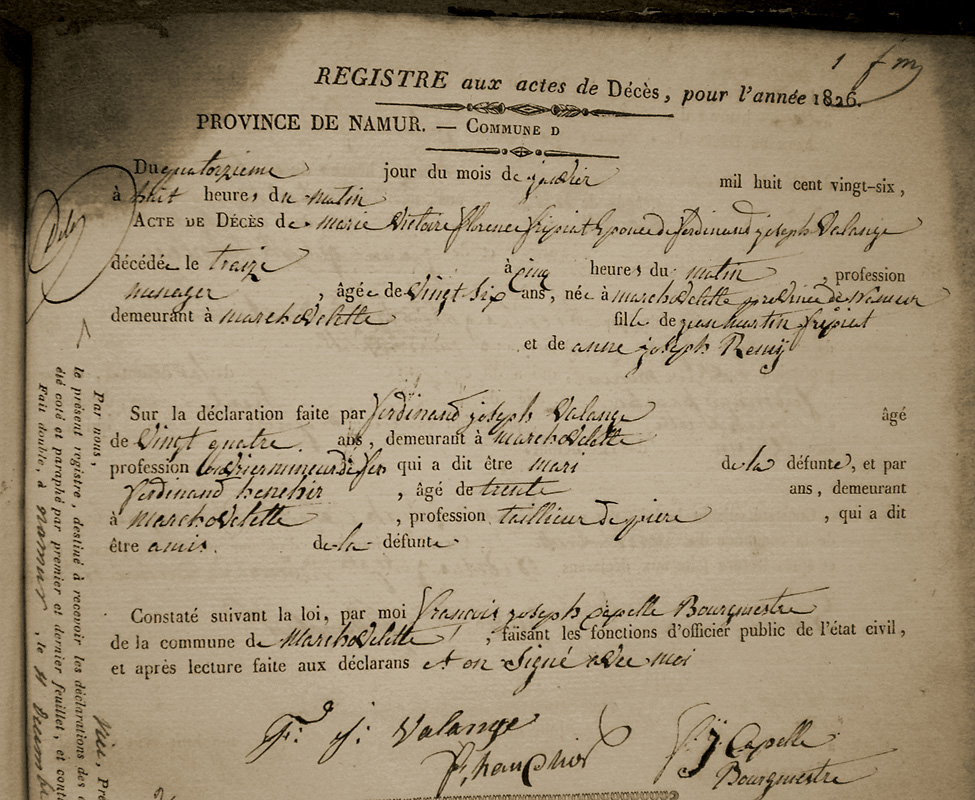 1 f
REGISTRE aux actes de Décès, pour l'année 1826.
PROVINCE DE NAMUR. — COMMUNE D
Du quatorzieme jour du mois de janvier mil huit cent vingt-six,
à huit heures du matin
ACTE DE DÉCÈS de marie victoire florence fripiat Epouse de ferdinand joseph Valange
décédée le traize à cinq heures du matin, profession
menager, âgée de vingt six ans, née à marchovelette province de Namur
demeurant à marchovelette fille de jean martin fripiat
et de anne joseph Remy
Sur la déclaration faite par ferdinand joseph Valange âgé
de vingt quatre ans, demeurant à marchovelette
profession ouvrier mineur de fer qui a dit être mari de la défunte, et par
ferdinand henchir, âgé de trente ans, demeurant
à marchovelette, profession taillieur de piere, qui a dit
être amis. de la défunte.
Constaté suivant la loi, par moi francois joseph Capelle Bourgmestre
de la commune de Marchovelette, faisant les fonctions d'officier public de l'état civil,
et après lecture faite aux déclarans et on Signé avec moi
F. j. Valange
f. j. Capelle
Bourgmestre
Par nous,
le présent registre, destiné à recevoir les déclarations des
été coté et paraphé par premier et dernier feuillet, et
Fait double, à namur, le